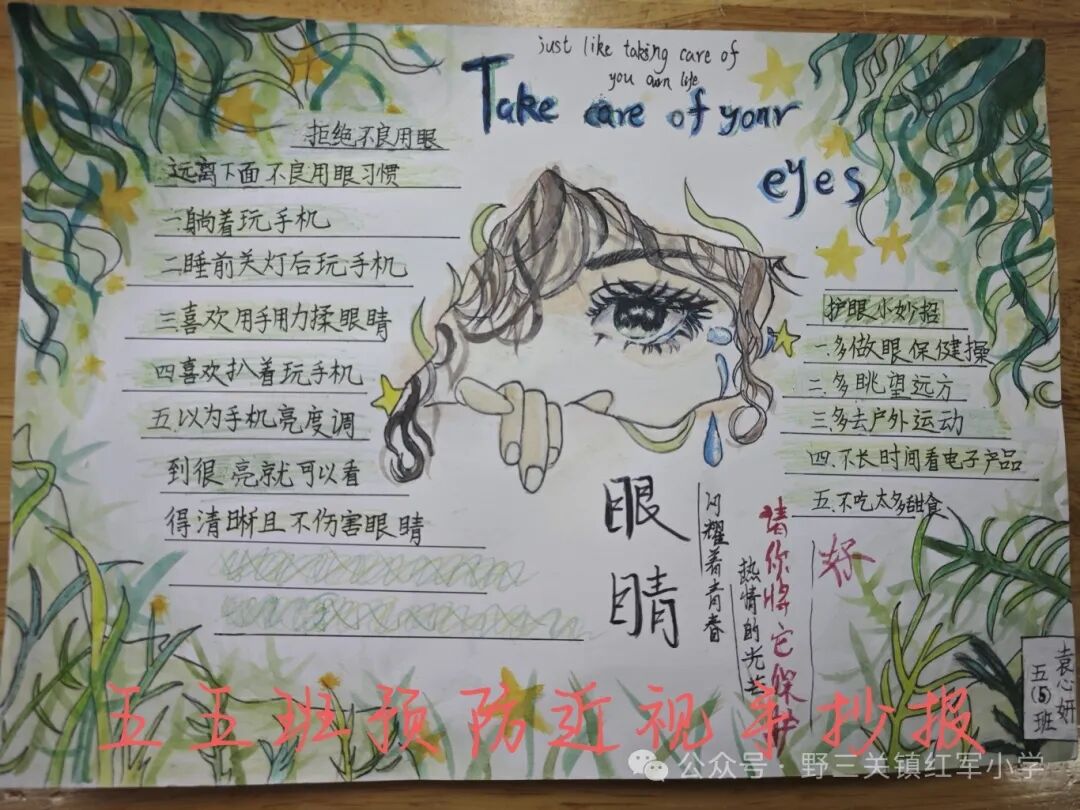 just like taking care of
you own life
Take care of your
eyes
拒绝不良用眼
远离下面不良用眼习惯
一.躺着玩手机
二睡前关灯后玩手机
三喜欢用手用力揉眼睛
四喜欢扒着玩手机
五.以为手机亮度调
到很亮就可以看
得清晰且不伤害眼睛
护眼小妙招
一.多做眼保健操
二.多眺望远方
三.多去户外运动
四.不长时间看电子产品
五.不吃太多甜食
眼睛
闪耀着青春
热情的光芒
请你将它保护
好
袁心妍
五(5)班
五五班预防近视手抄报
公众号·野三关镇红军小学